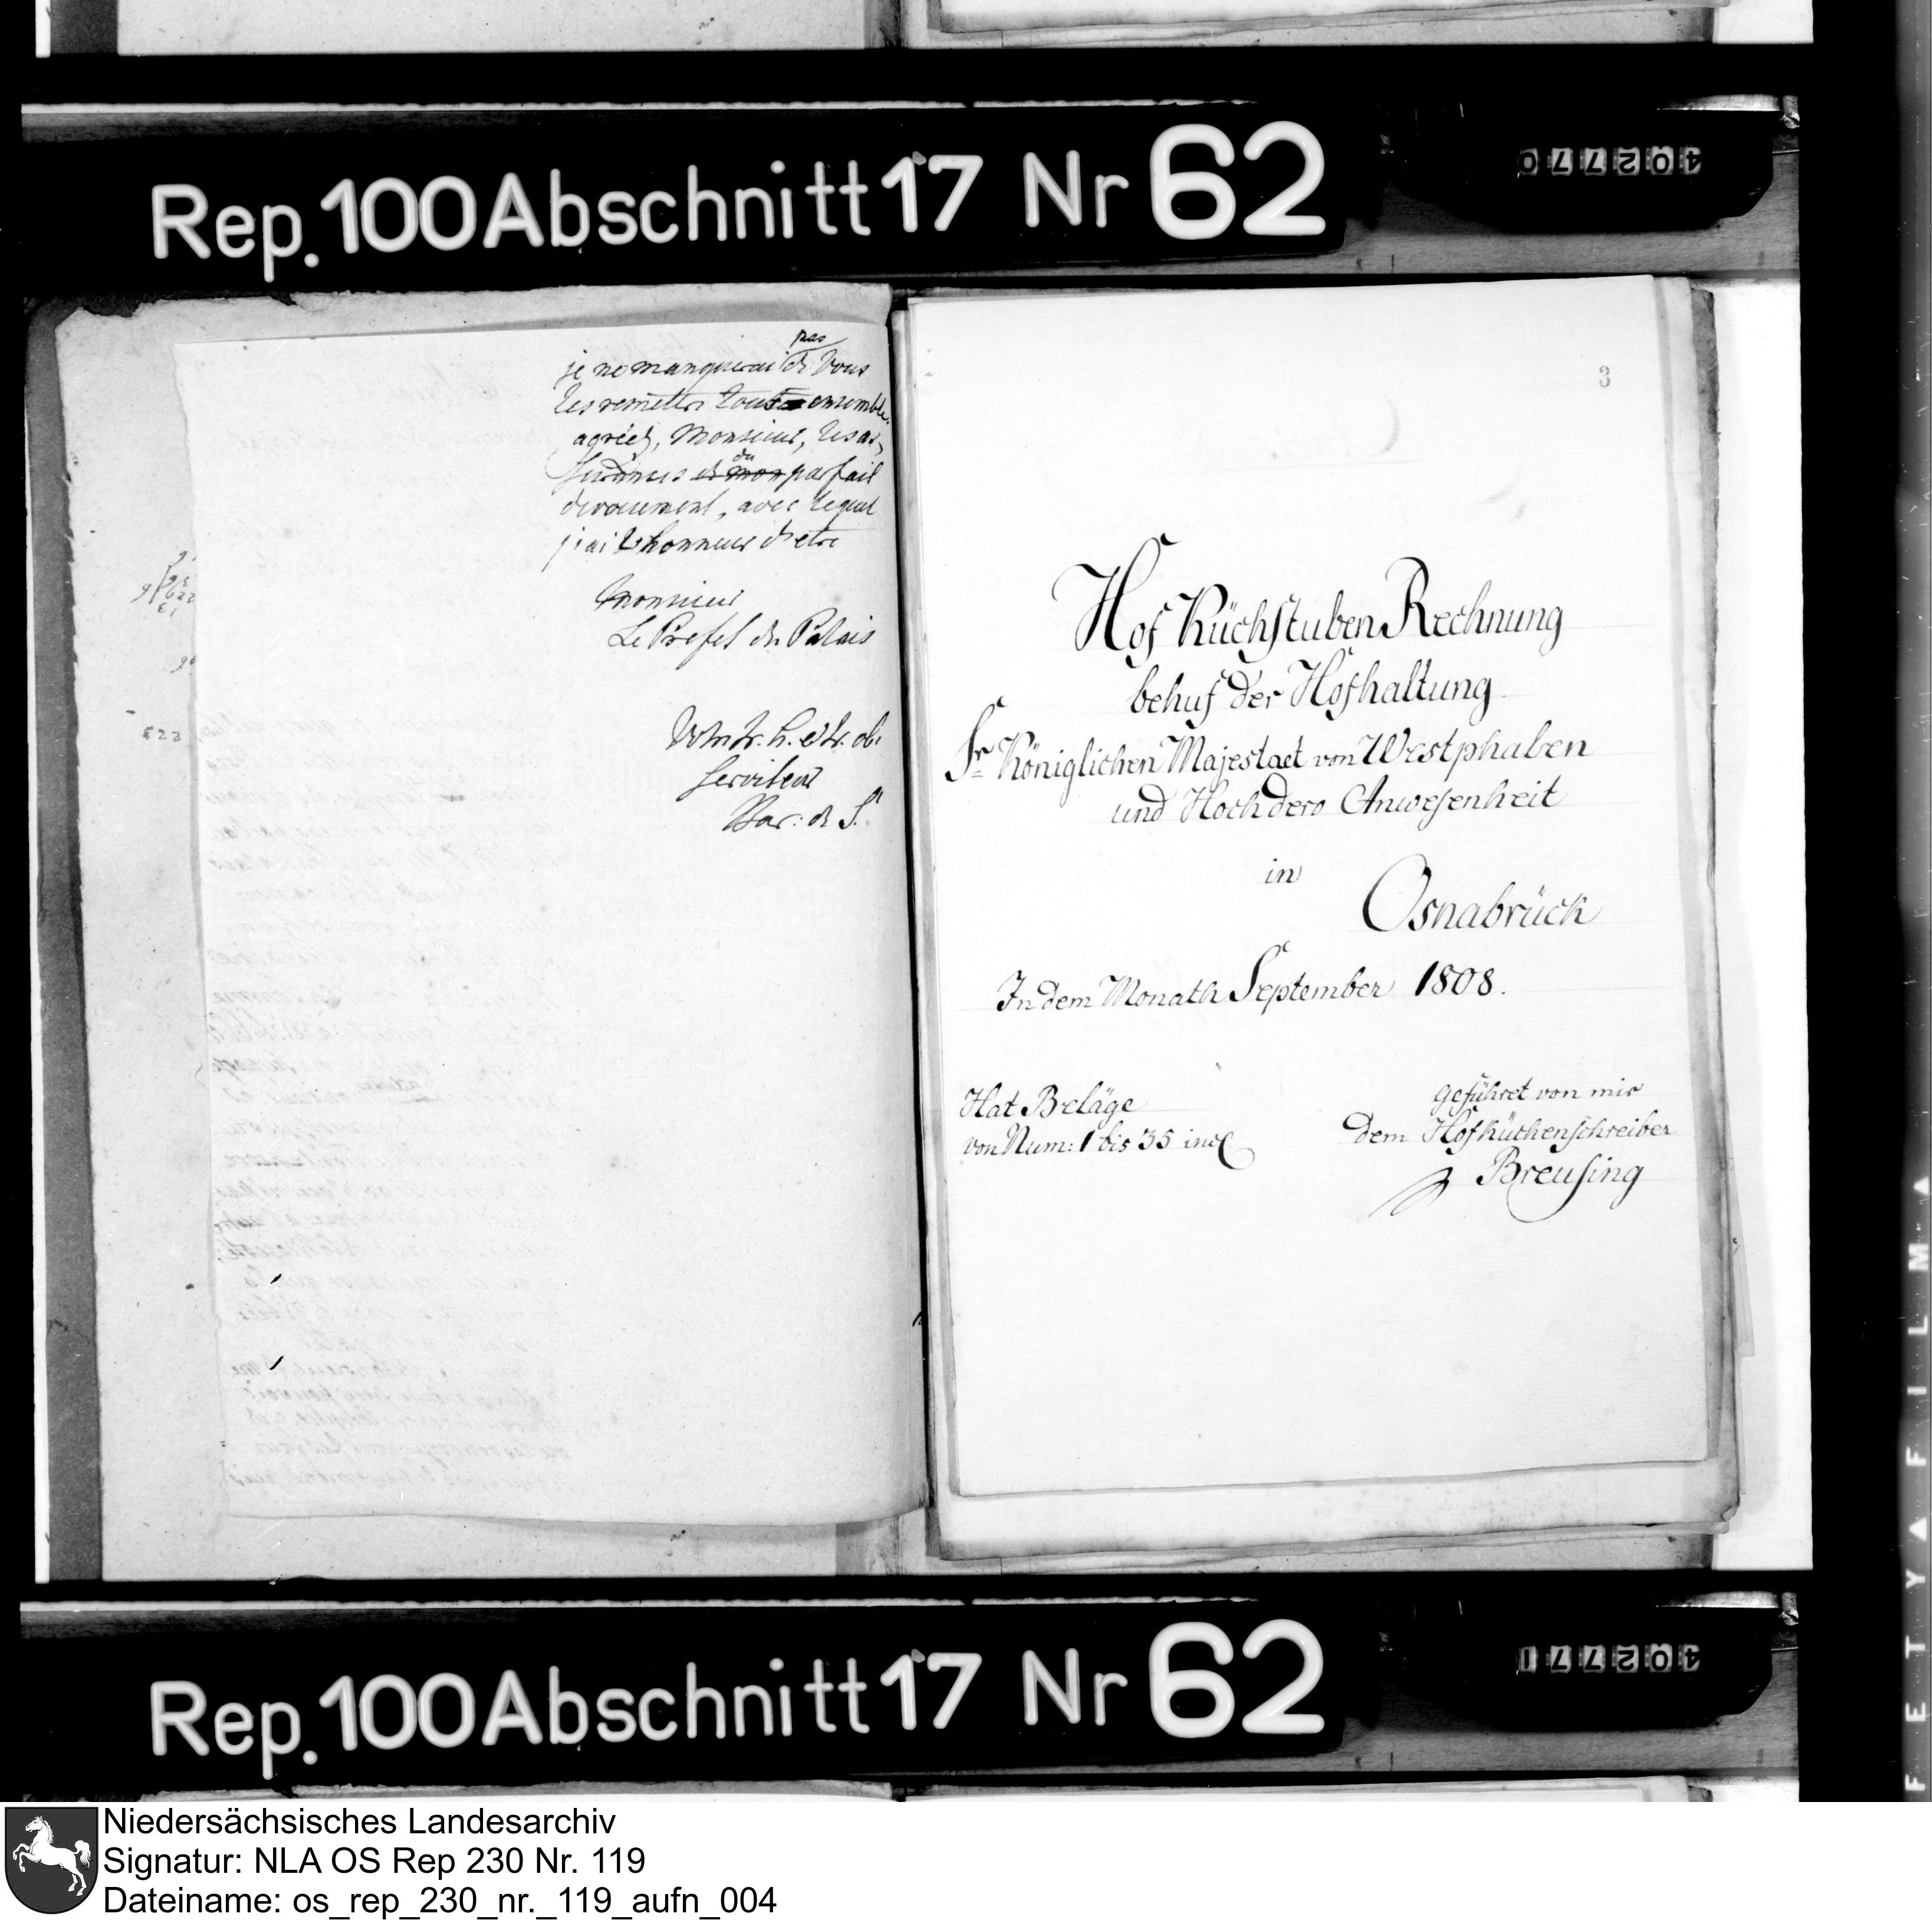 Rep. 100 Abschnitt 17 Nr 62
402770
pas
je ne manquerai de vous
les remettre tout ensemble.
agréés, Monsieur, les as,
surances du parfait
devouement, avec lequel
j'ai l'honneur d'etre
Monsieur
Le Prefet du Palais
Votre tr. h. et tr. ob.
serviteur
Bar: de S.
3
Hof KüchstubenRechnung
behuf der Hofhaltung
Sr Königlichen Majestaet von Westphalen
und Hochdero Anwesenheit
in
Osnabrück
In dem Monath September 1808.
Hat Beläge
von Num: 1 bis 35 incl
geführet von mir
dem Hofküchenschreiber
Breusing
Rep. 100 Abschnitt 17 Nr 62
402771
Niedersächsisches Landesarchiv
Signatur: NLA OS Rep 230 Nr. 119
Dateiname: os_rep_230_nr._119_aufn_004